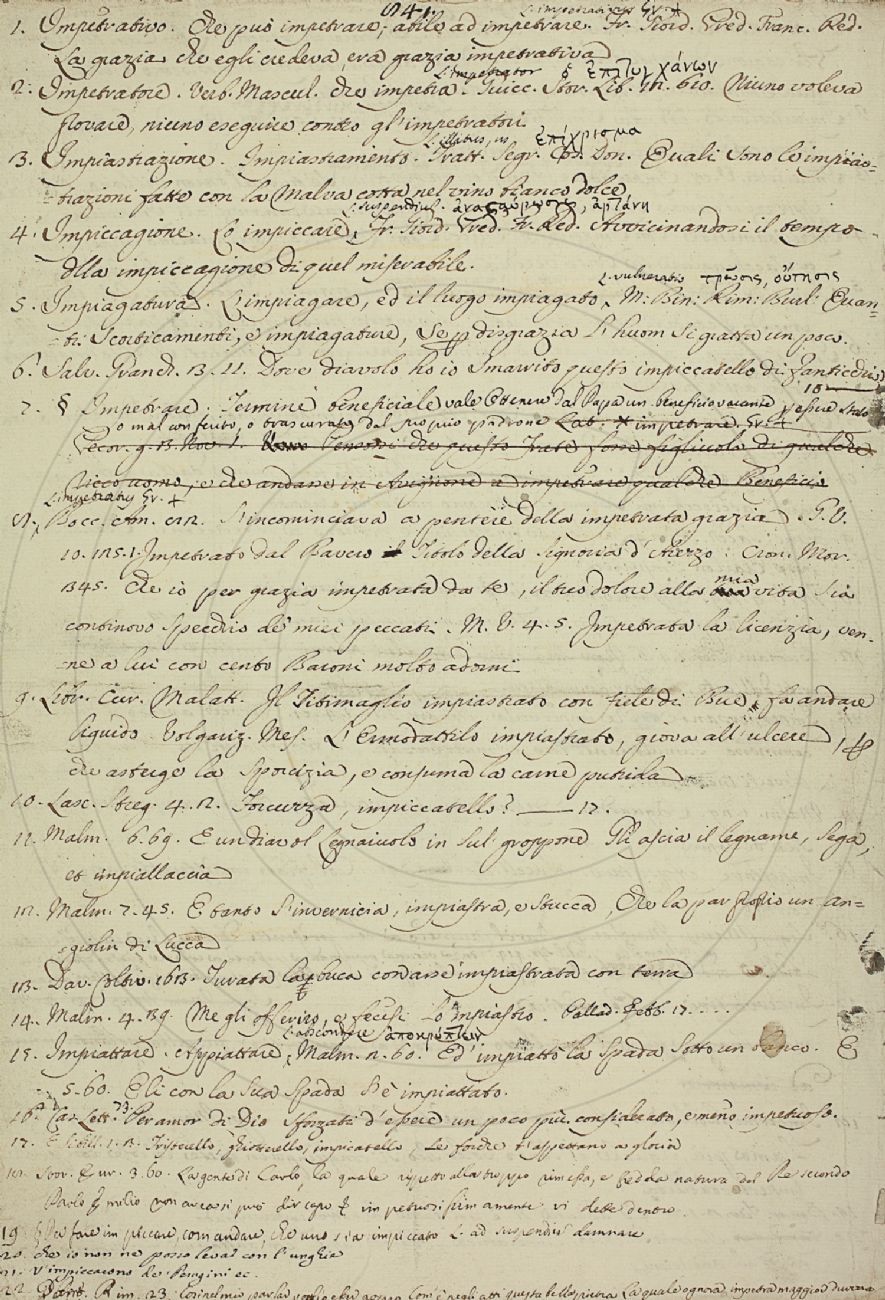 841.
L. impetrativus Gr. +
1. Impetrativo. Che può impetrare; abile ad impetrare. Fr. Giord. Pred. Franc. Red.
La grazia che egli credeva, era grazia impetrativa
L. impetrator ὁ ἐπιτυγχάνων
2. Impetratore. Verb. Mascul. che impetra. Guicc. Stor. Lib. 610. Niuno voleva
trovare, niuno eseguire contro gl' impetratori.
L. illitus, us ἐπίχρισμα
3. Impiastrazione. Impiastramento. Tratt. Segr. Cos. Don. Quali sono le impias-
trazioni fatte con la Malva cotta nel vino bianco dolce
L. suspendium. ἀνασταύρωσις, ἀρτάνη
4. Impiccagione. Lo impiccare, Fr. Giord. Pred. Fr. Red. Avvicinandosi il tempo
della impiccagione di quel miserabile.
L. vulneratio τρῶσις, οὔτησις
5. Impiagatura. L'impiagare, ed il luogo impiagato, M: Bin: Rim: Burl: Quan-
ti scorticamenti, e impiagature, Se p disgrazia L' huom si gratta un poco.
6. Salv. Granch. 13. 11. Dove diavolo ho io smarrito questo impiccatello di fanticchio
7. § Impetrare: Termine beneficiale vale Ottenere dal Papa un beneficio vacante
o mal conferito, o trascurato dal proprio padrone Lat. impetrare. Gr. +
Pecor. g. 13. Nov. 1. Pensomi che questo frate fosse figliuolo di qualche
Ricco uomo, e che andasse in Avignone a impetrare qualche Beneficio
L. impetratus Gr. +
8. Bocc. Am. car. S'incominciava a pentere della impetrata grazia. G. V.
10. 125. 1. Impetrato dal Bavero il titolo della Signoria d' Arezzo: Cron. Mor.
345. Che io per grazia impetrata da te, il tuo dolore alla mia vita sia
continovo specchio de' miei peccati. M. V. 4. 5. Impetrata la licenzia, ven-
ne a lui con cento Baroni molto adorni
9. Libr. Cur. Malatt. Il Titimaglio impiastrato con fiele di Bue, fa andare
liquido. Volgariz. Mes. L'Ermodattilo impiastrato, giova all' ulcere,
che asterge la sporcizia, e consuma la carne putrida
10. Lasc. Streg. 4. 2. Forcuzza, impiccatello? —— 17.
11. Malm. 6. 69. E un diavol Legnaiuolo in sul groppone Gli ascia il legname, sega,
et impiallaccia
12. Malm. 7. 45. E tanto s'invernicia, impiastra, e stucca, Che la par proprio un an-
giolin di Lucca
13. Dav. Coltiv. 163. Turata la buca con asse impiastrata con terra
14. Malm. 4. 39. Me gli offerisco, e fecesi lo 'mpiastro. Pallad. Febb. 17. . . . .
L. abscondere ἀποκρύπτειν
15. Impiattare. Appiattare, Malm. 2. 60. Ed' impiatto la spada sotto un banco. E
5. 60. E lì con la sua spada s'è impiattato.
16. Car. Lett. 73. Per amor di Dio sforzati d'essere un poco più consiglato, e meno impetuoso.
17. E Sibill. 1. 3. Tristerello, ghiotterello, impiccatello, Le forche t'aspettano a gloria
18. Stor. Eur. 3. 60. La gente di Carlo, la quale rispetto alla troppo rimessa, e fredda natura del Re secondo
Paolo Emilio non avea si può dir capo impetuosissimamente vi dette dentro.
19. § Per fare impiccare, comandare, che uno sia impiccato L. ad suspendium damnare
20. che io non ne posso levar con l'unghie
21. V'impiccarono de Perugini ec.
22. Dant. Rim. 23. Così nel mio parlar voglio esser aspro Com' è negli atti questa bella pietra La quale ognora impetra maggior durezza